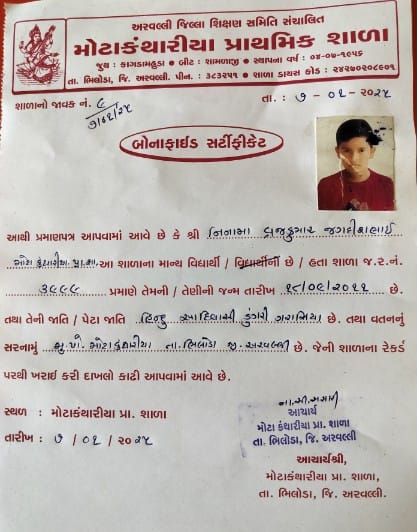 અરવલ્લી જિલ્લા શિક્ષણ સમિતિ સંચાલિત
મોટાકંથારીયા પ્રાથમિક શાળા
જુથ : કાગડામહુડા • બીટ : શામળાજી • સ્થાપના વર્ષ : ૦૪-૦૭-૧૯૫૬
તા. ભિલોડા, જિ. અરવલ્લી. પીન. : ૩૮૩૨૫૧ • શાળા ડાયસ કોડ : ૨૪૨૭૦૨૦૮૯૦૧
શાળાનો જાવક નં. ૬
૭/૦૬/૨૫
તા. : ૭ - ૦૬ - ૨૦૨૫
બોનાફાઈડ સર્ટીફીકેટ
આથી પ્રમાણપત્ર આપવામાં આવે છે કે શ્રી નિનામા વ્રજકુમાર જગદીશભાઈ
મોટા કંથારીયા પ્રા.શા. આ શાળાના માન્ય વિદ્યાર્થી / વિદ્યાર્થીની છે / હતા શાળા જ.ર.નં.
૩૯૯૯ પ્રમાણે તેમની / તેણીની જન્મ તારીખ ૧૮/૦૯/૨૦૧૧ છે.
તથા તેની જાતિ / પેટા જાતિ હિન્દુ આદિવાસી ડુંગરી ગરાસિયા છે. તથા વતનનું
સરનામું મુ.પો. મોટાકંથારીયા તા. ભિલોડા જી. અરવલ્લી છે. જેની શાળાના રેકર્ડ
પરથી ખરાઈ કરી દાખલો કાઢી આપવામાં આવે છે.
સ્થળ : મોટાકંથારીયા પ્રા. શાળા
તારીખ : ૭ / ૦૬ / ૨૦૨૫
આચાર્ય
મોટા કંથારીયા પ્રા. શાળા
તા. ભિલોડા, જિ. અરવલ્લી
આચાર્યશ્રી,
મોટાકંથારીયા પ્રા. શાળા,
તા. ભિલોડા, જિ. અરવલ્લી.